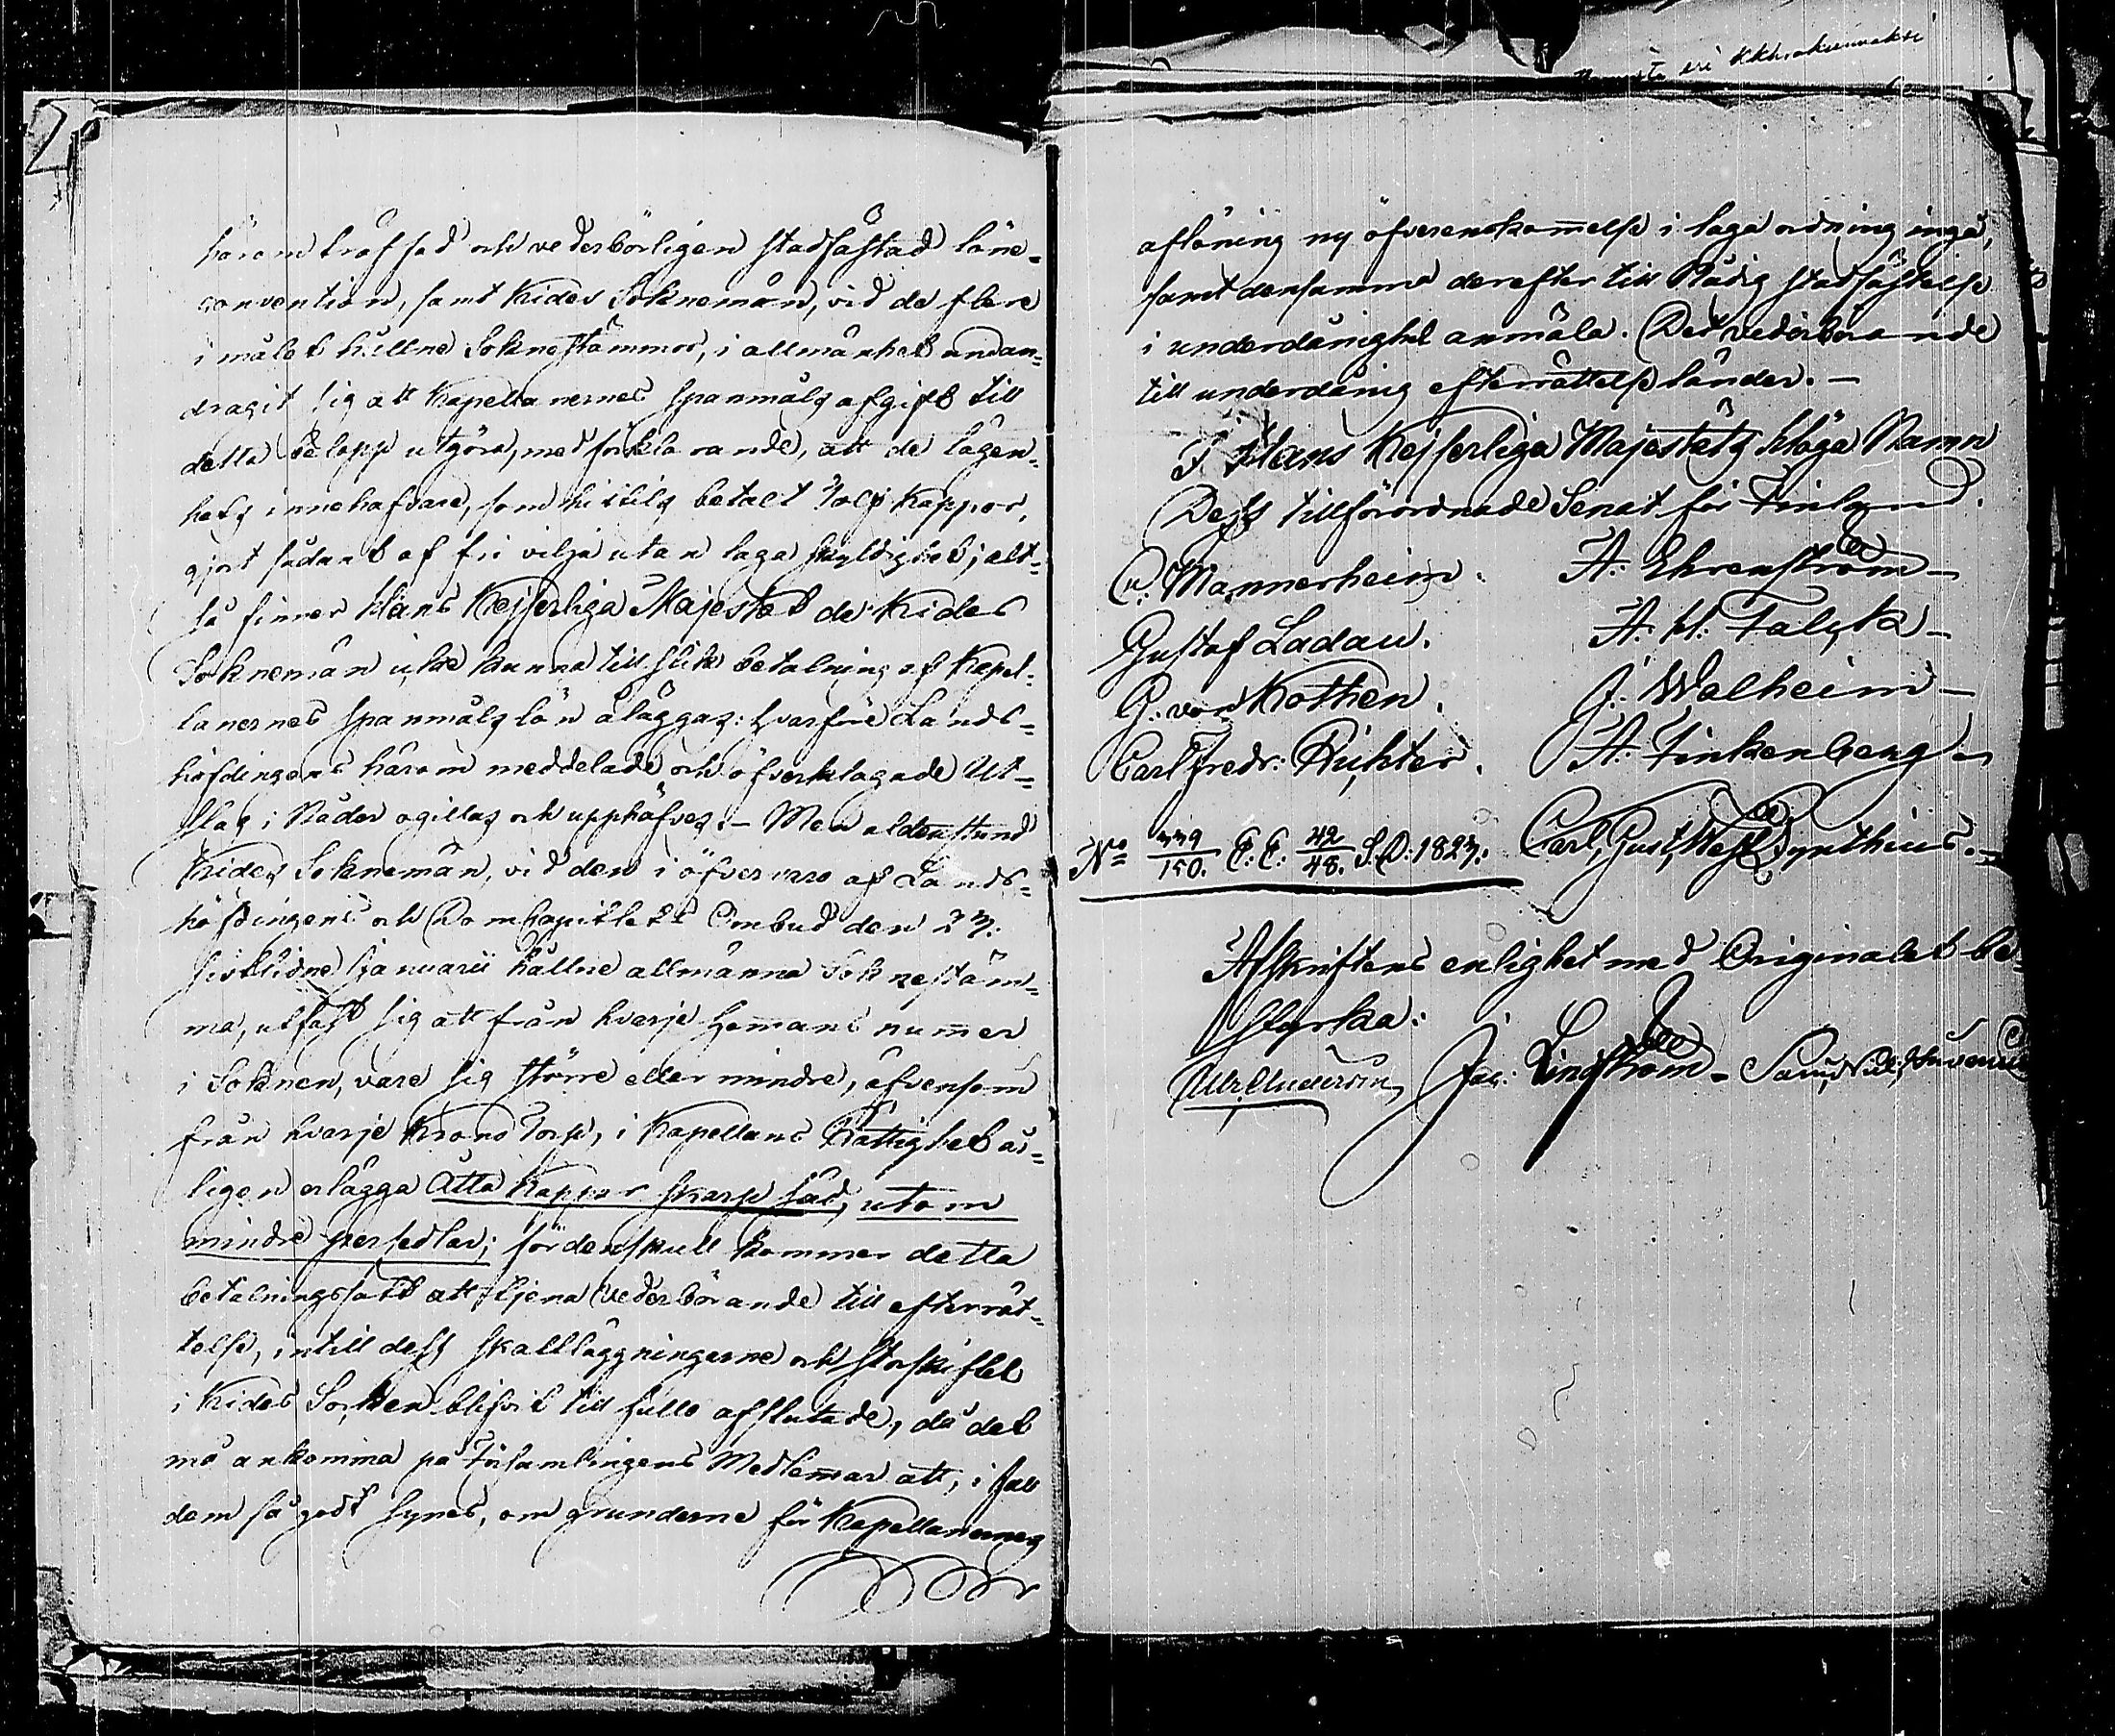 härom träffad och vederbörligen stadfästad löne-
convention, samt Kides Soknemän, vid de flere
i målet hållne Soknestämmor, i allmänhet undan-
dragit sig att Kapellanernes Spanmåls afgift till
detta belopp utgöra, med förklarande, att de lägen-
hets innehafvare, som hittils betalt Tolf Kappor,
gjort sådant af fri vilja utan laga skyldighet; alt-
så finner Hans Kejserliga Majestät de Kides
Soknemän icke kunna till slik betalning af Kapel-
lanernes Spanmåls lön åläggas: hvarföre Lands-
höfdingens härom meddelade och öfverklagade Ut-
slag i Nåder ogillas och upphäfves. – Men aldenstund
Kides Soknemän, vid den i öfvervaro af Lands-
höfdingens och DomCapitlets Ombud den 23.
sistlidne Januarii hållne allmänna Soknestäm-
ma, utfäst sig att från hvarje Hemmans nummer
i Soknen, vare sig större eller mindre, äfvensom
från hvarje Krono Torp, i Kapellans Rättighet år-
ligen erlägga Åtta Kappar skarp Säd, utom
mindre persedlar; fördenskull kommer detta
betalningssätt att tjena vederbörande till efterrät-
telse, intill dess skattläggningarne och Storskiftet
i Kides Socken blifvit till fullo afslutade, då det
må ankomma på Församlingens Medlemmar att, i fall
dem så godt synes, om grunderne för Kapellanernes
aflöning ny öfverenskommelse i laga ordning ingå,
samt densamma derefter till Nådig stadfästelse
i underdånighet anmäla. Det vederbörande
till underdånig efterrättelse länder. –
I Hans Kejserliga Majestäts Höga Namn
Dess tillförordnade Senat för Finland.
C: Mannerheim. A: Ehrenström –
Gustaf Ladau. A: H: Falck –
G: von Kothen. J: Walheim –
Carl Fredr: Richter. A: Finkenberg –
No 339/150. E: E: 42/48. S: D: 1823. Carl Gust:
Afskriftens enlighet med Originalet be-
styrka:
Jac: Lindström –